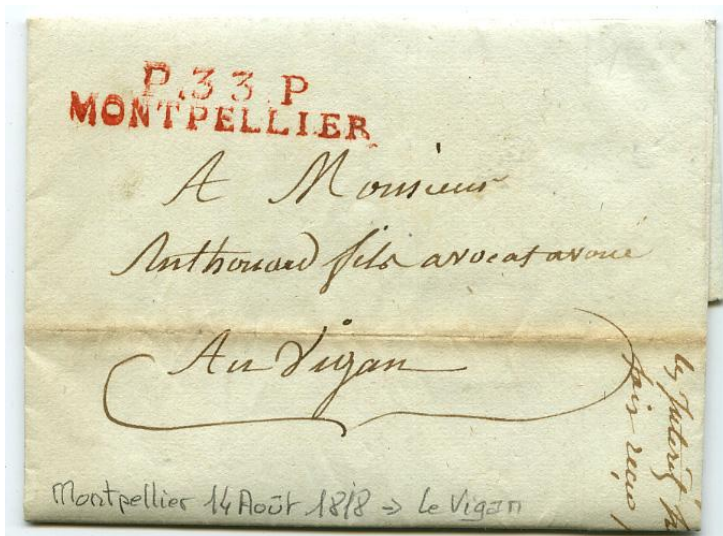 P.33.P
MONTPELLIER
A Monsieur
Anthouard fils avocat avoué
Au Vigan
Montpellier 14 Août 1818 → Le Vigan